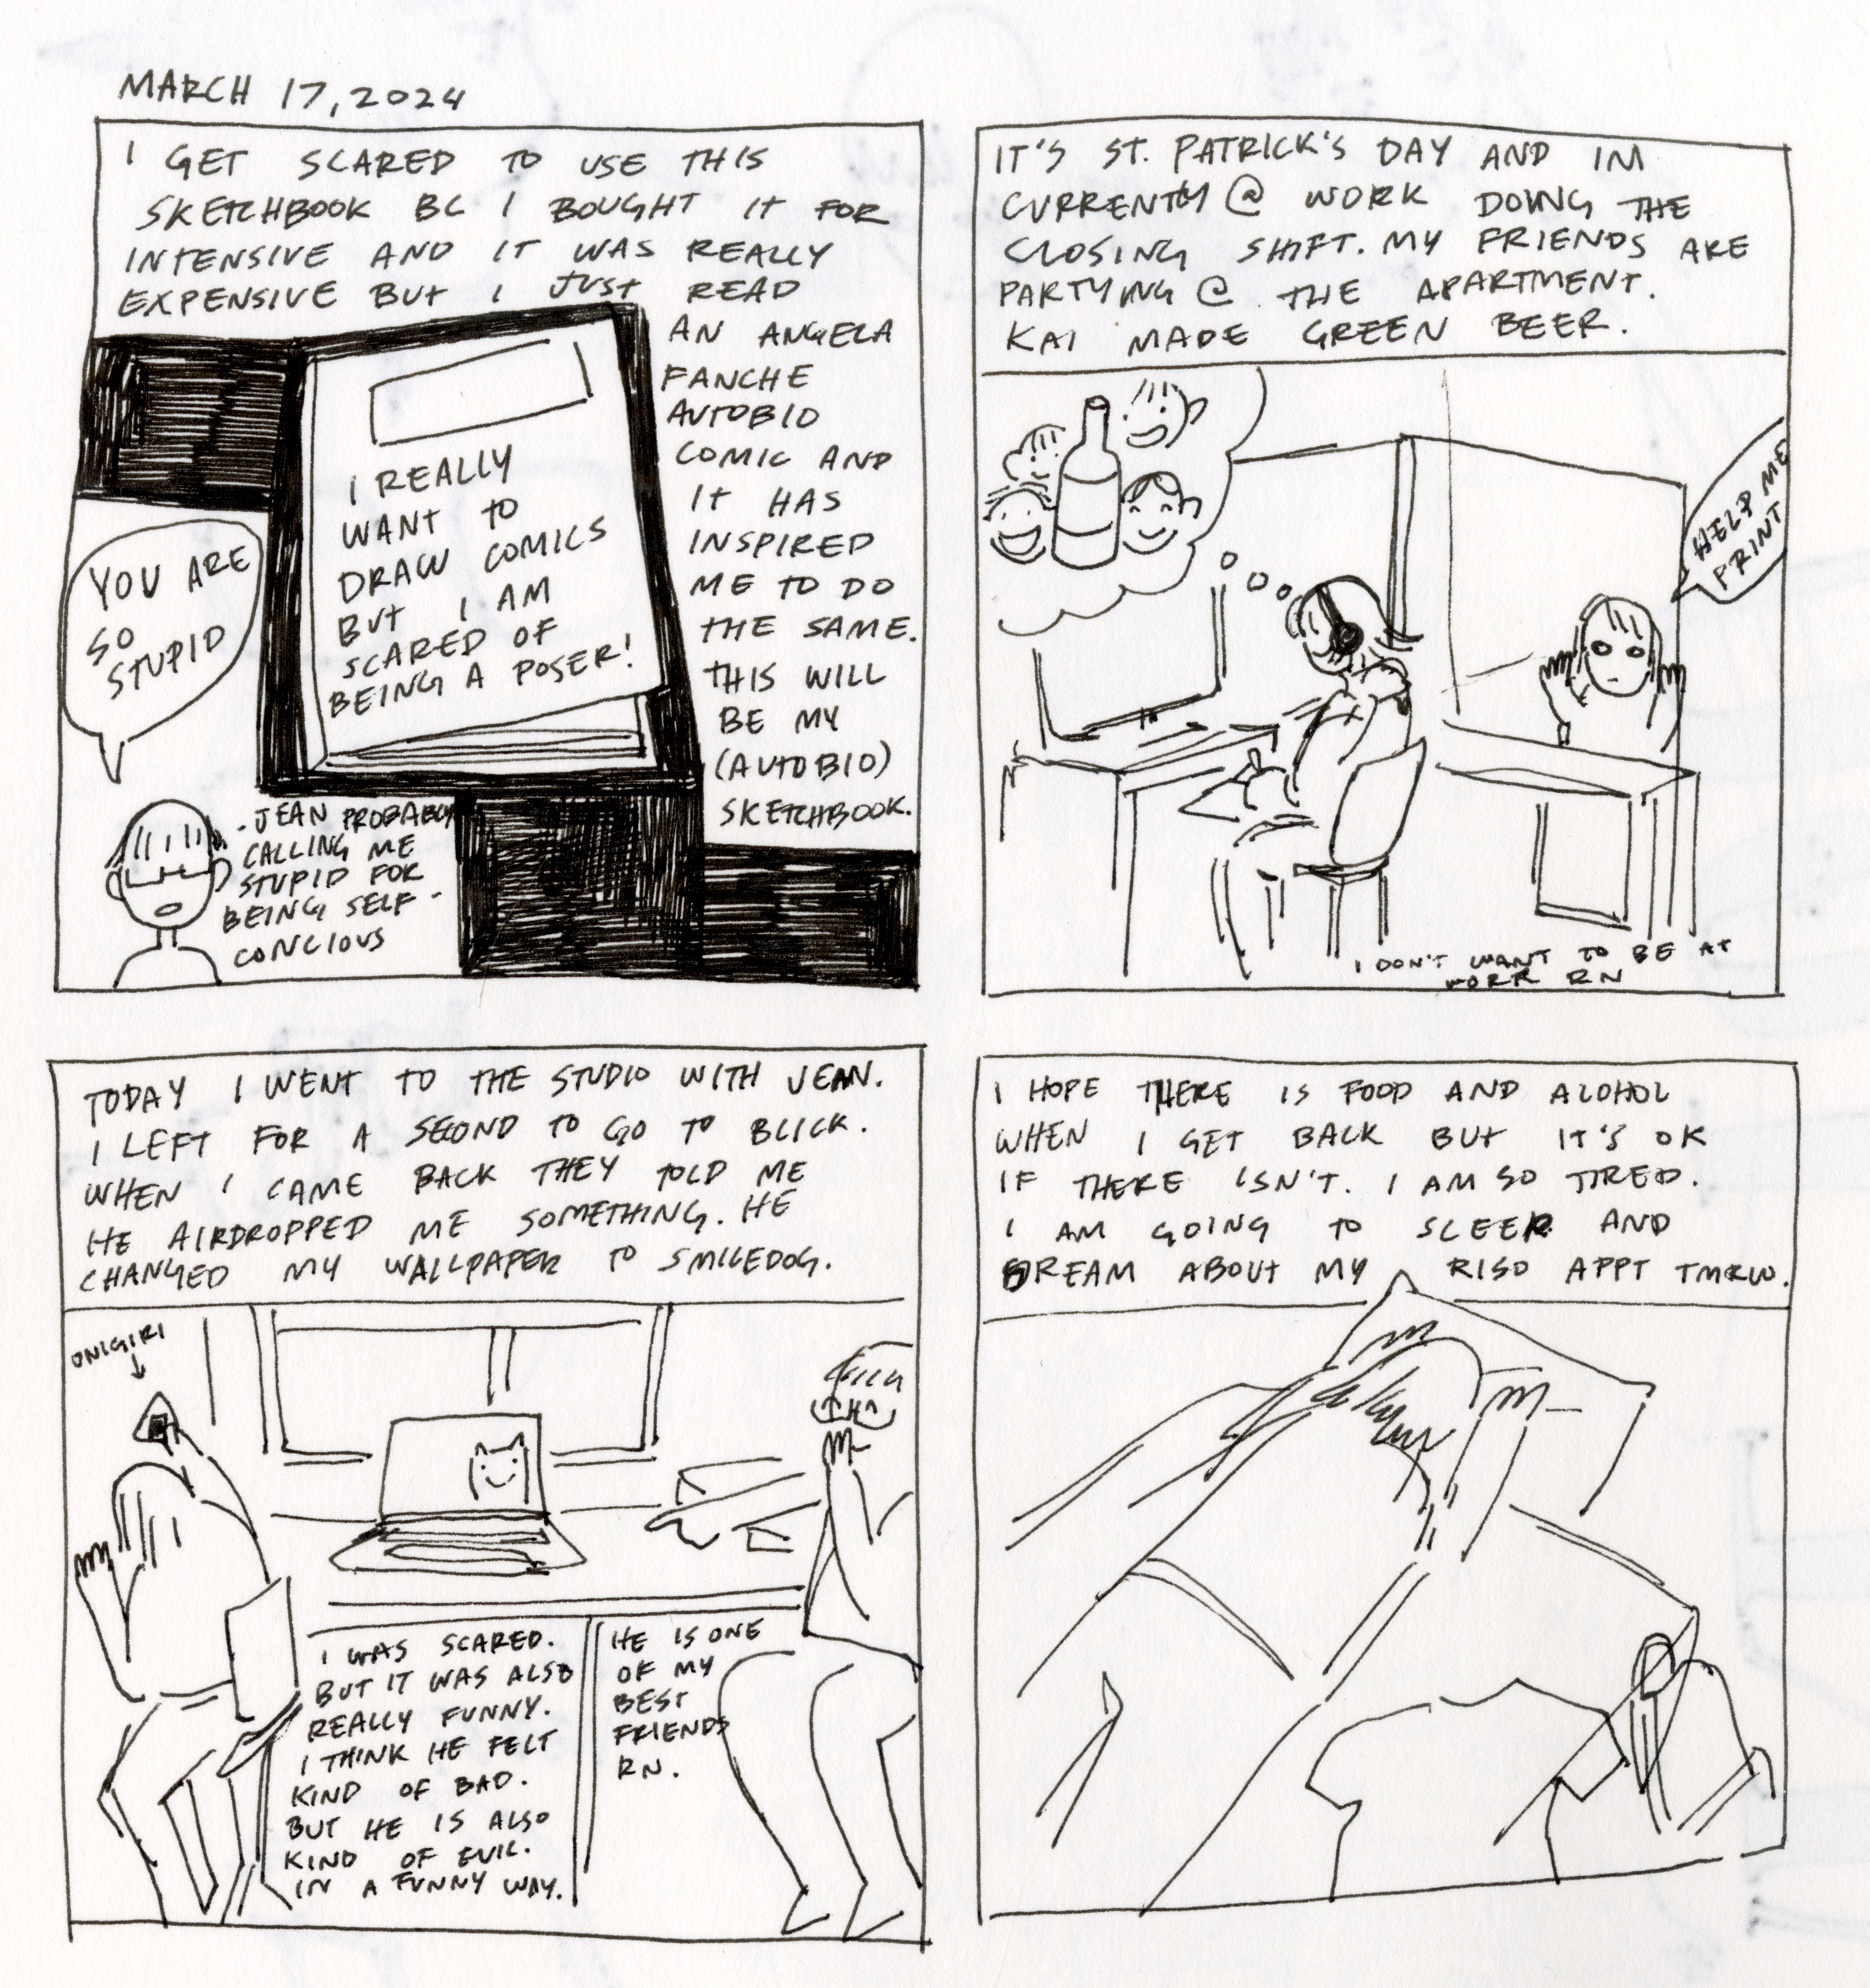 MARCH 17, 2024
I GET SCARED TO USE THIS
SKETCHBOOK BC I BOUGHT IT FOR
INTENSIVE AND IT WAS REALLY
EXPENSIVE BUT I JUST READ
AN ANGELA
FANCHE
AUTOBIO
COMIC AND
IT HAS
INSPIRED
ME TO DO
THE SAME.
THIS WILL
BE MY
(AUTOBIO)
SKETCHBOOK.
I REALLY
WANT TO
DRAW COMICS
BUT I AM
SCARED OF
BEING A POSER!
YOU ARE
SO
STUPID
- JEAN PROBABLY
CALLING ME
STUPID FOR
BEING SELF -
CONCIOUS
IT'S ST. PATRICK'S DAY AND IM
CURRENTLY @ WORK DOING THE
CLOSING SHIFT. MY FRIENDS ARE
PARTYING @ THE APARTMENT.
KAI MADE GREEN BEER.
HELP ME
PRINT
I DON'T WANT TO BE AT
WORK RN
TODAY I WENT TO THE STUDIO WITH JEAN.
I LEFT FOR A SECOND TO GO TO BLICK.
WHEN I CAME BACK THEY TOLD ME
HE AIRDROPPED ME SOMETHING. HE
CHANGED MY WALLPAPER TO SMILEDOG.
ONIGIRI
I WAS SCARED.
BUT IT WAS ALSO
REALLY FUNNY.
I THINK HE FELT
KIND OF BAD.
BUT HE IS ALSO
KIND OF EVIL.
IN A FUNNY WAY.
HE IS ONE
OF MY
BEST
FRIENDS
RN.
I HOPE THERE IS FOOD AND ALOHOL
WHEN I GET BACK BUT IT'S OK
IF THERE ISN'T. I AM SO TIRED.
I AM GOING TO SLEEP AND
DREAM ABOUT MY RISO APPT TMRW.